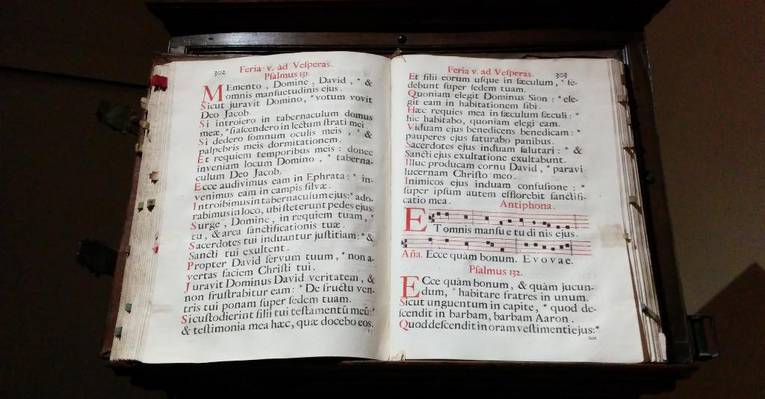 302
Feria v. ad Vesperas.
Psalmus 131.
Memento, Domine, David, * &
omnis mansuetudinis ejus.
Sicut juravit Domino, * votum vovit
Deo Jacob.
Si introiero in tabernaculum domus
meæ, * si ascendero in lectum strati mei
Si dedero somnum oculis meis, * &
palpebris meis dormitationem.
Et requiem temporibus meis: donec
inveniam locum Domino, * taberna-
culum Deo Jacob.
Ecce audivimus eam in Ephrata: * in-
venimus eam in campis silvæ.
Introibimus in tabernaculum ejus: * ado-
rabimus in loco, ubi steterunt pedes ejus.
Surge, Domine, in requiem tuam, *
tu, & arca sanctificationis tuæ.
Sacerdotes tui induantur justitiam: * &
Sancti tui exultent.
Propter David servum tuum, * non a-
vertas faciem Christi tui.
Juravit Dominus David veritatem, &
non frustrabitur eam: * De fructu ven-
tris tui ponam super sedem tuam.
Si custodierint filii tui testamentū meū: *
& testimonia mea hæc, quæ docebo eos.
Feria v. ad Vesperas. 303
Et filii eorum usque in sæculum, * se-
debunt super sedem tuam.
Quoniam elegit Dominus Sion: * ele-
git eam in habitationem sibi.
Hæc requies mea in sæculum sæculi: *
hic habitabo, quoniam elegi eam.
Viduam ejus benedicens benedicam: *
pauperes ejus saturabo panibus.
Sacerdotes ejus induam salutari: * &
Sancti ejus exultatione exultabunt.
Illuc producam cornu David, * paravi
lucernam Christo meo.
Inimicos ejus induam confusione: *
super ipsum autem efflorebit sanctifi-
catio mea.
Antiphona.
ET omnis mansue tu di nis ejus.
Aña. Ecce quàm bonum. E v o v a e.
Psalmus 132.
Ecce quàm bonum, & quàm jucun-
dum, * habitare fratres in unum.
Sicut unguentum in capite, * quod de-
scendit in barbam, barbam Aaron.
Quod descendit in oram vestimenti ejus: *